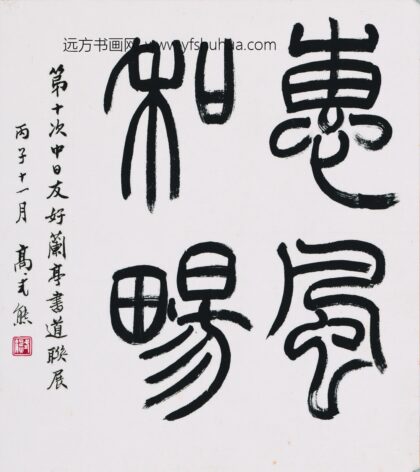 远方书画网 www.yfshuhua.com
惠風
和畼
第十次中日友好蘭亭書道聯展
丙子十一月 高式熊